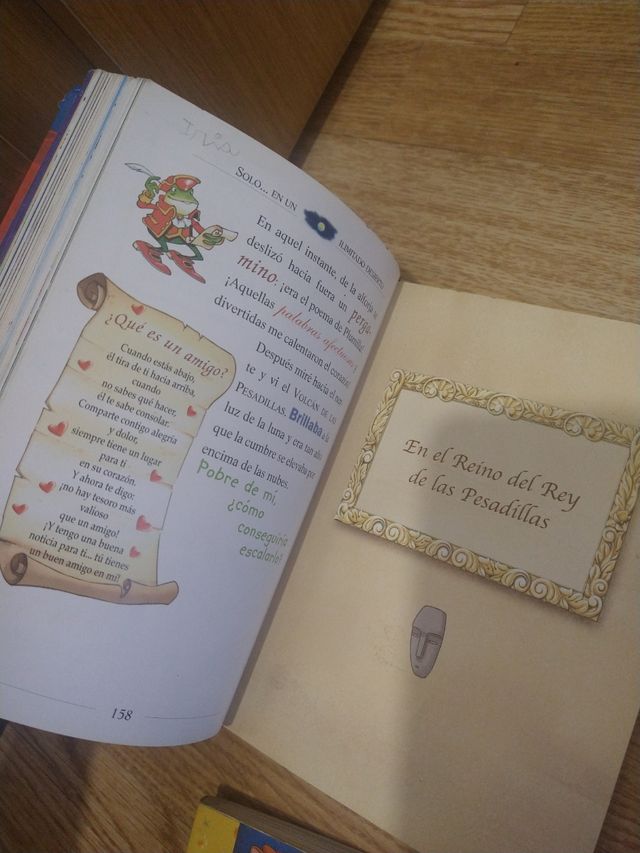 Iria
SOLO... EN UN ILIMITADO DESIERTO
En aquel instante, de la alforja se
deslizó hacia fuera un perga-
mino: ¡era el poema de Plumilla!
¡Aquellas palabras afectuosas y
divertidas me calentaron el corazón!
Después miré hacia el nor-
te y vi el VOLCÁN DE LAS
PESADILLAS. Brillaba a la
luz de la luna y era tan alto
que la cumbre se elevaba por
encima de las nubes.
Pobre de mí,
¿cómo
conseguiría
escalarlo?
¿Qué es un amigo?
Cuando estás abajo,
él tira de ti hacia arriba,
cuando
no sabes qué hacer,
él te sabe consolar.
Comparte contigo alegría
y dolor,
siempre tiene un lugar
para ti
en su corazón.
Y ahora te digo:
¡no hay tesoro más
valioso
que un amigo!
¡Y tengo una buena
noticia para ti... tú tienes
un buen amigo en mí!
158
En el Reino del Rey
de las Pesadillas